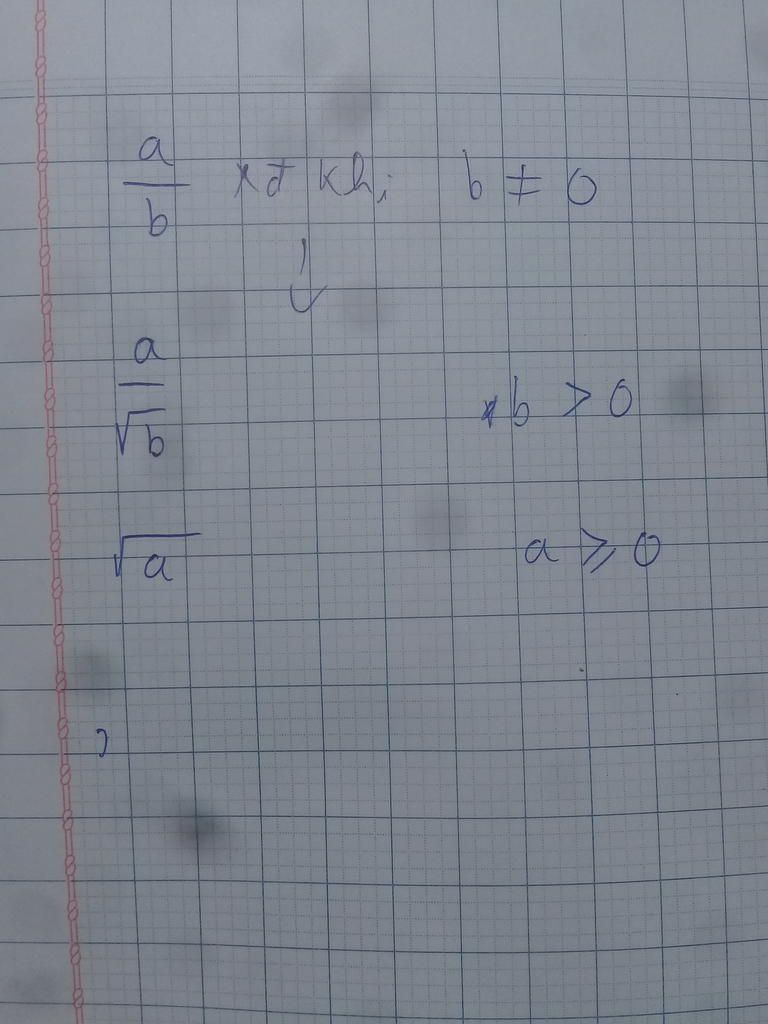 a/b xđ khi b ≠ 0
↓
a/√b b > 0
√a a ⩾ 0